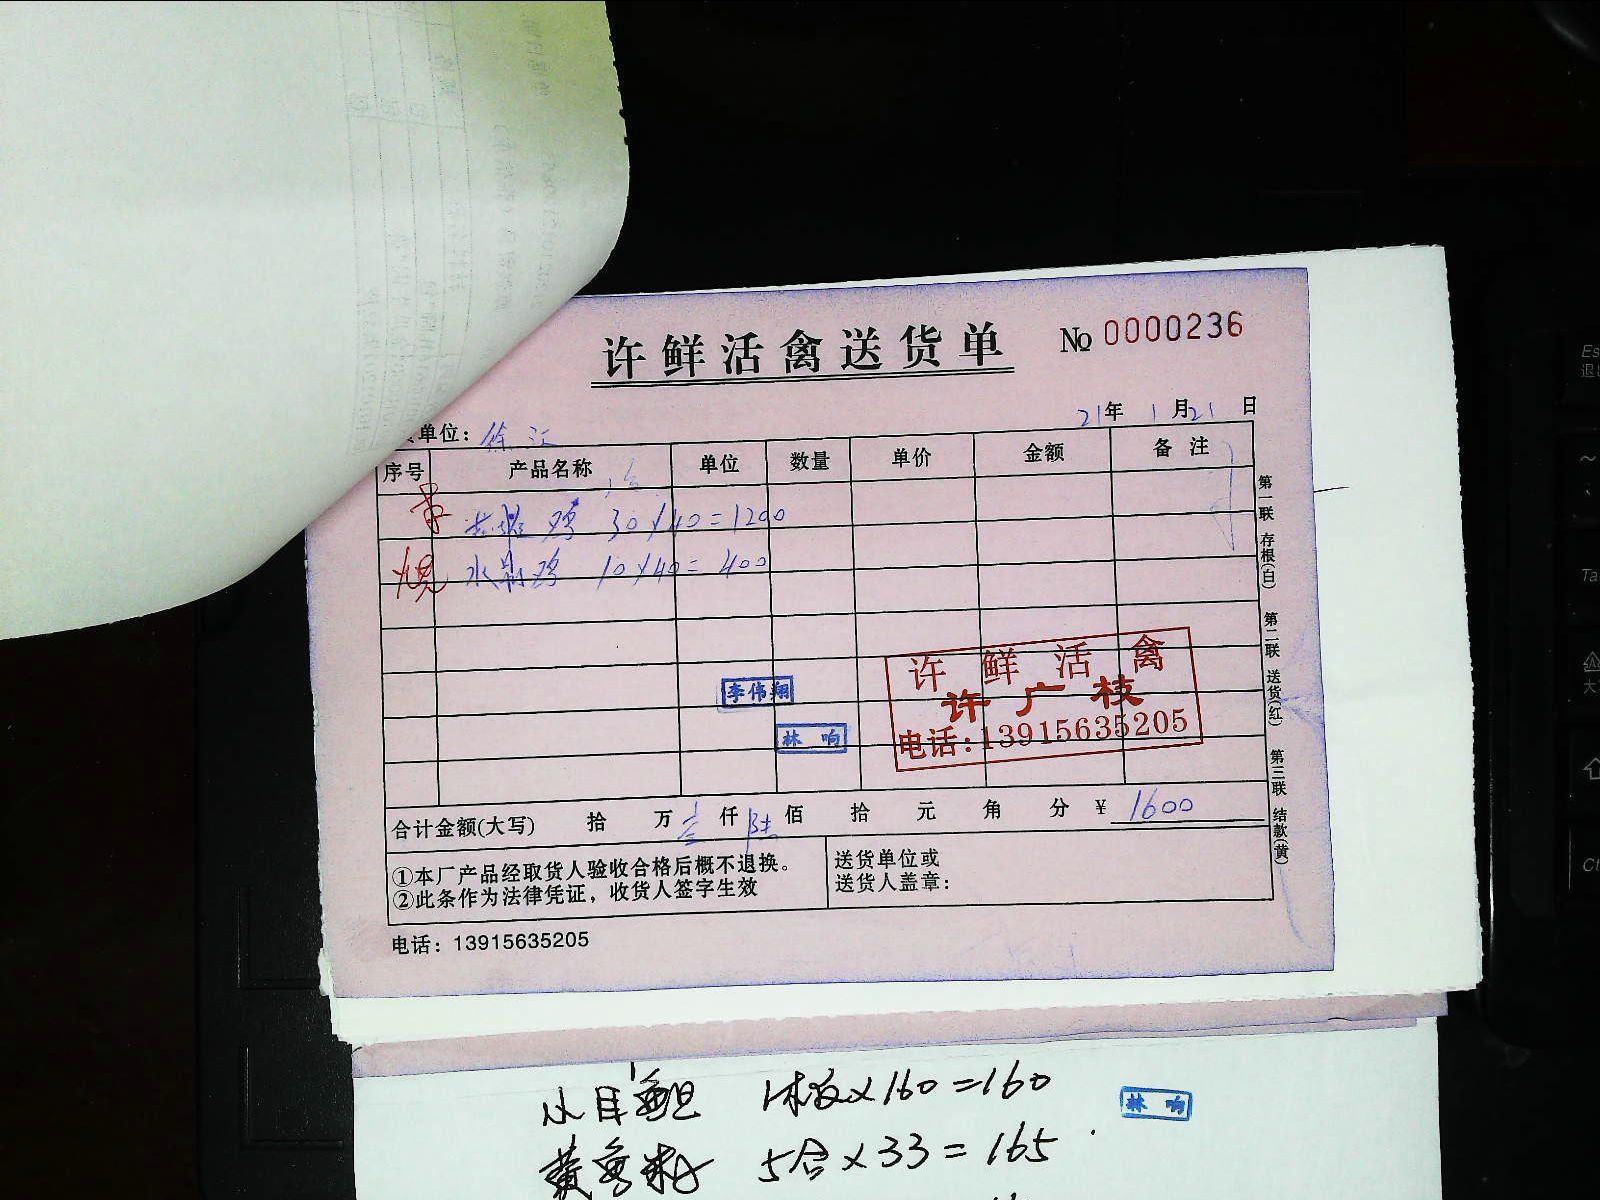 许鲜活禽送货单 № 0000236
21年 1月21日
单位：徐汇
序号 产品名称 单位 数量 单价 金额 备注
鸡 30×40=1200
水 鸡 10×40=400
李伟翔
林响
许鲜活禽
许广枝
电话:13915635205
合计金额(大写) 拾 万 壹 仟 陆 佰 拾 元 角 分 ¥ 1600
①本厂产品经取货人验收合格后概不退换。
②此条作为法律凭证，收货人签字生效
送货单位或
送货人盖章：
电话：13915635205
第一联 存根(白) 第二联 送货(红) 第三联 结款(黄)
×160=160
林响
5合×33=165